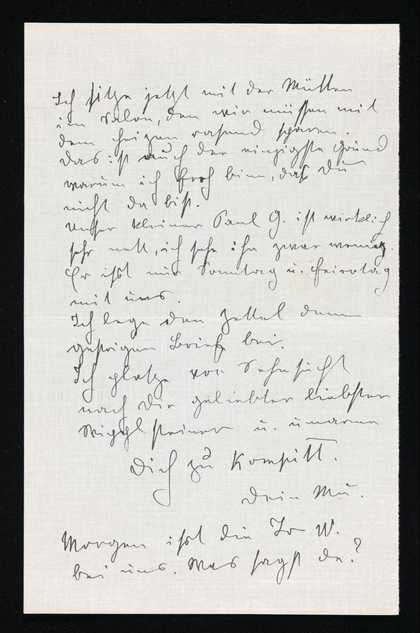 Ich sitze jetzt mit der Mutter
im Salon, den wir müssen mit
dem heizen rasend sparen.
Das ist auch der einzigste Grund
warum ich froh binn, daß Du
nicht da bist.
Unser kleiner Paul G. ist wirklich
sehr nett, ich sehe ihn zwar wenig.
Er ißt nur Sonntag u. Feiertag
mit uns.
Ich lege den Zettel dem
gestrigen Briefe bei.
Ich platze vor Sehnsucht
nach Dir geliebter liebster
steiner u. umarme
Dich zu
Dein Mu.
Morgen ißt die W.
bei uns. Was sagst da?